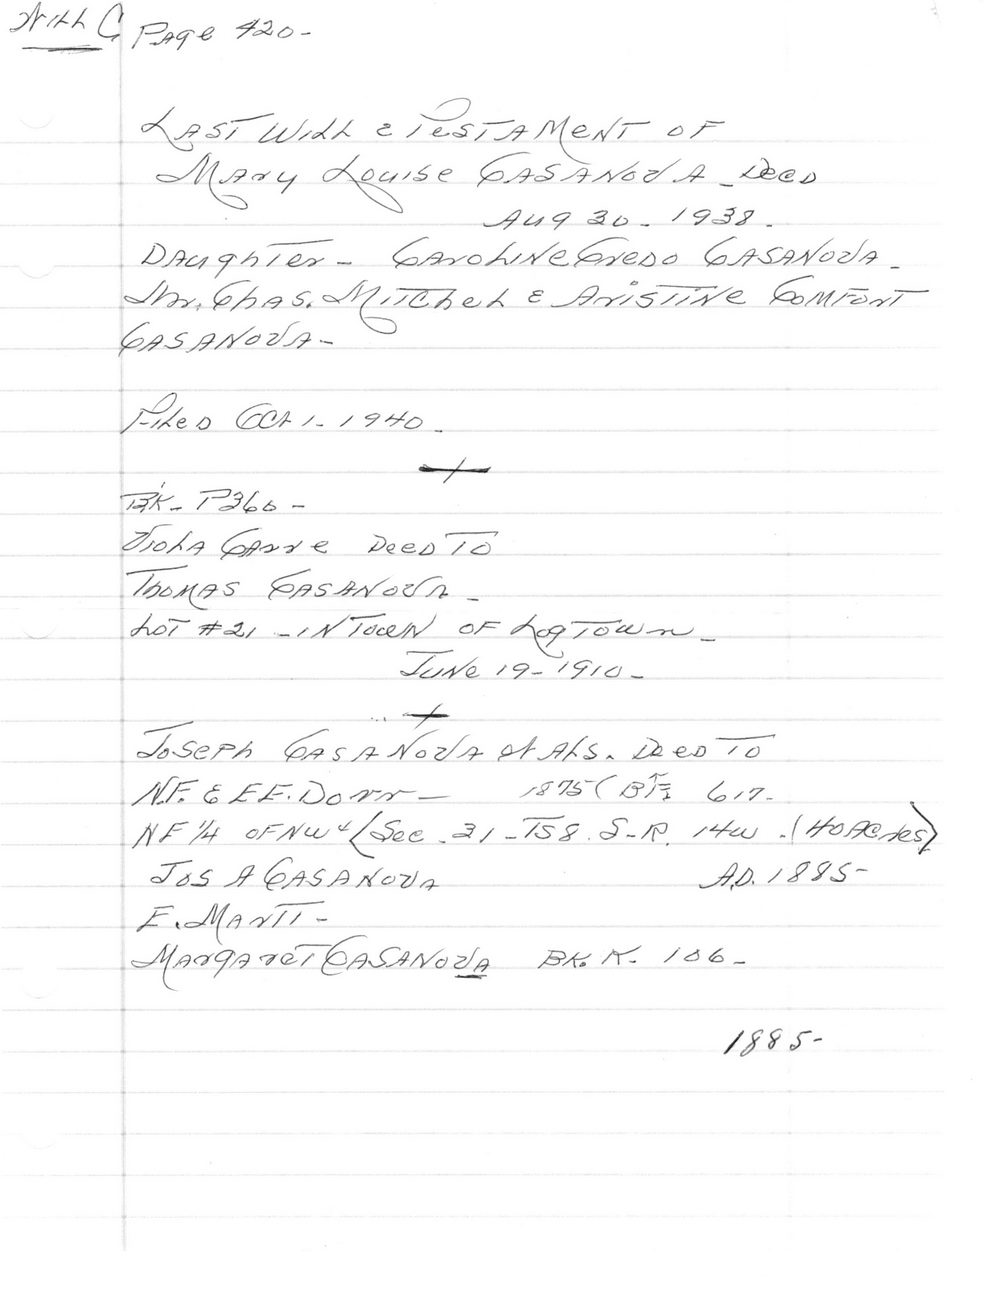 Will C Page 420-
Last Will & Testament of
Mary Louise Casanova - Decd
Aug 30 - 1938.
Daughter - Caroline Credo Casanova -
Mr. Chas. Mitchel & Aristine Comfort
Casanova -
Filed Oct 1 - 1940.
BK - P360 -
Viola Carre Deed To
Thomas Casanova -
Lot #21 - in Town of Logtown -
June 19 - 1910 -
Joseph Casanova et Als. Deed To
N.F. & E.E. Dorr - 1875 ( 617 -
NE 1/4 of NW (Sec. 31 - T58. S-R. 14W. (40 Acres)
Jos A Casanova A.D. 1885 -
E. Marti -
Margaret Casanova BK. K. 106 -
1885 -